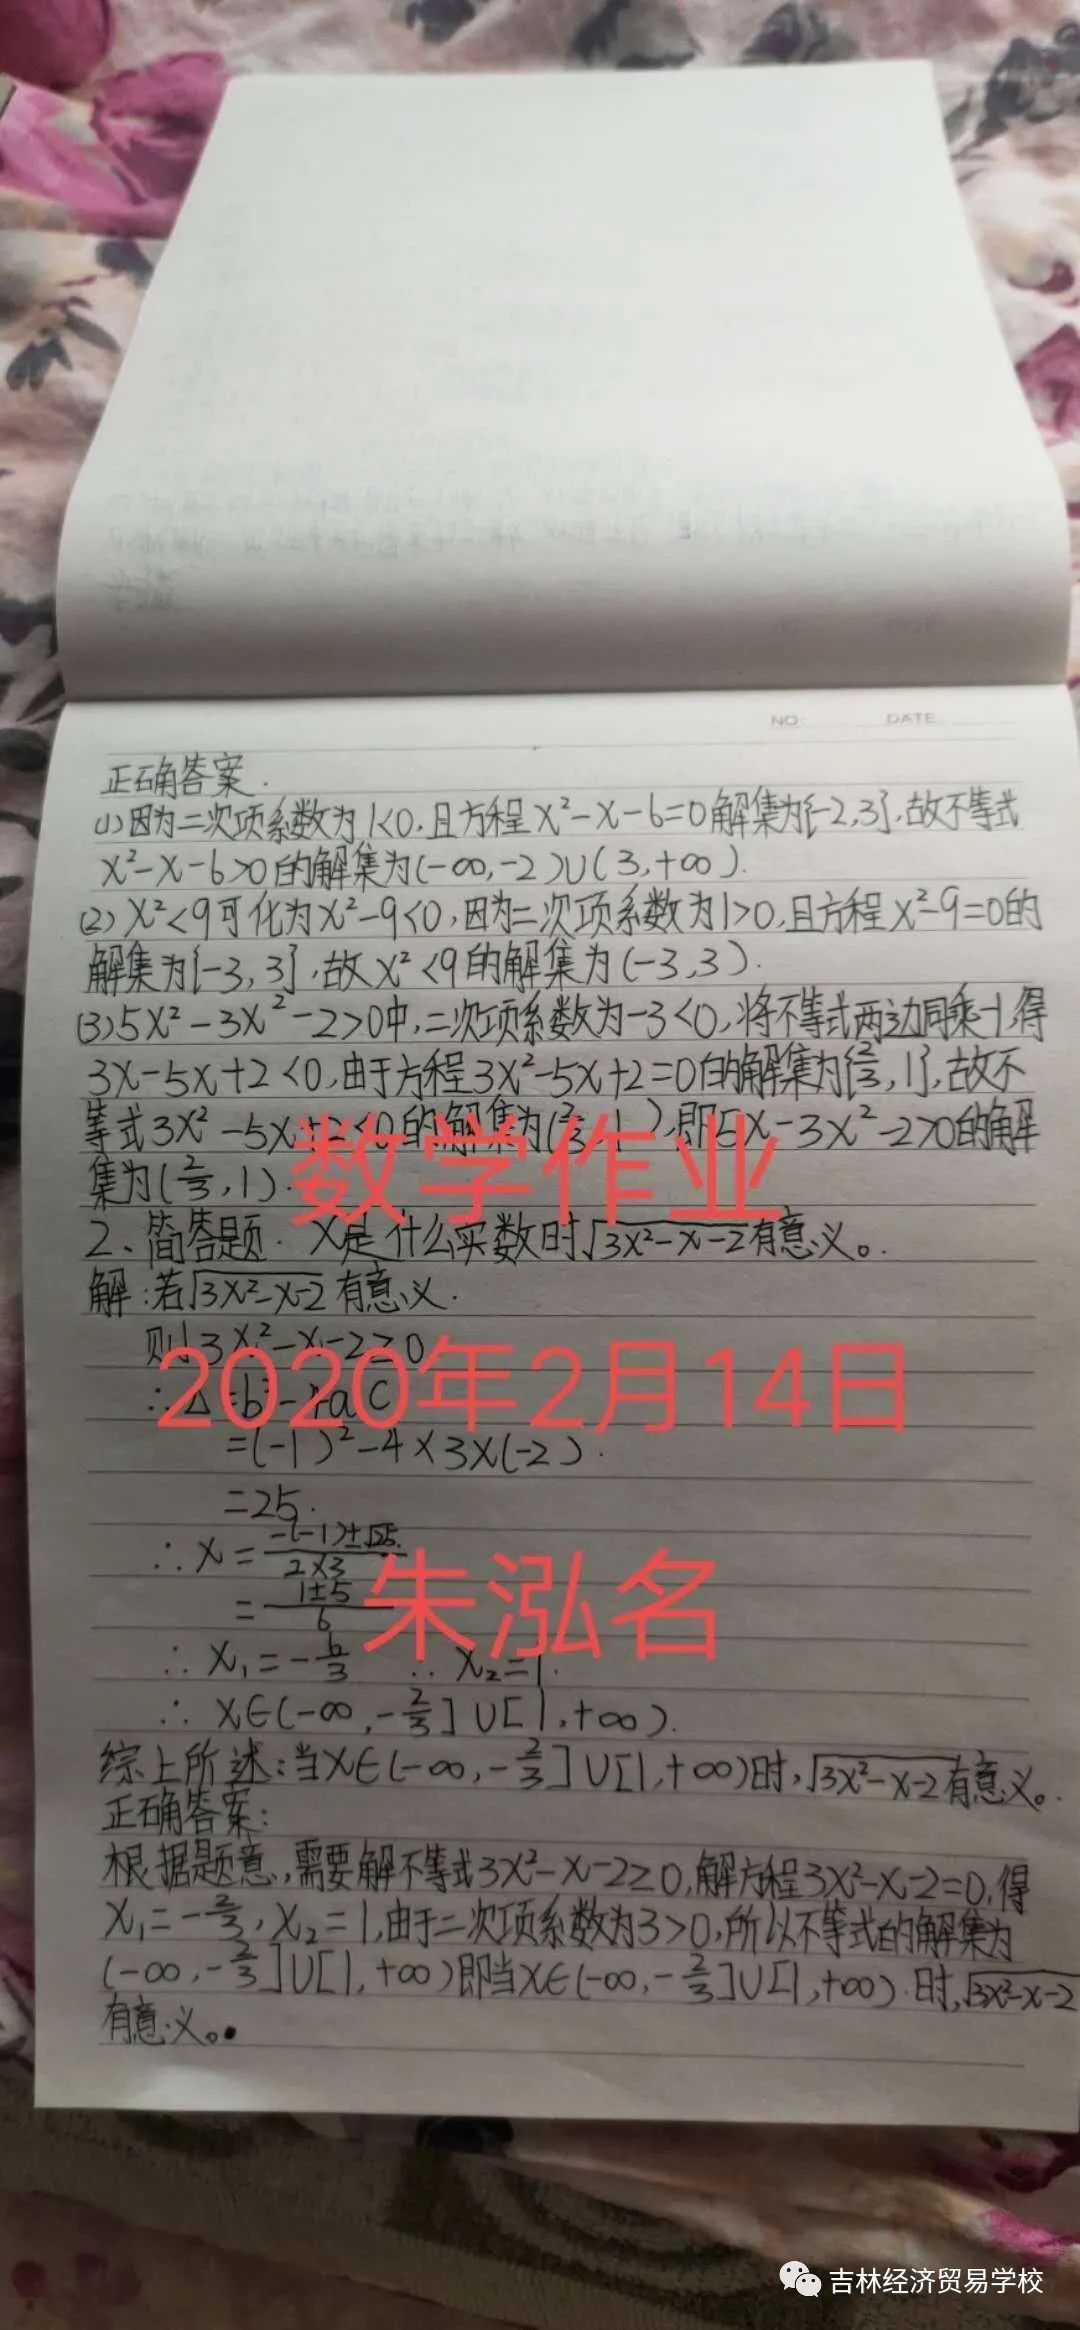 NO: DATE
正确答案.
(1)因为二次项系数为1<0,且方程x²-x-6=0解集为{-2,3},故不等式
x²-x-6>0的解集为(-∞,-2)∪(3,+∞).
(2)x²<9可化为x²-9<0,因为二次项系数为1>0,且方程x²-9=0的
解集为{-3,3},故x²<9的解集为(-3,3).
(3)5x²-3x²-2>0中,二次项系数为-3<0,将不等式两边同乘-1,得
3x-5x+2<0,由于方程3x²-5x+2=0的解集为{2/3,1},故不
等式3x²-5x+2<0的解集为(2/3,1),即5x-3x²-2>0的解
集为(2/3,1).
数学作业
2、简答题.x是什么实数时√(3x²-x-2)有意义。
解:若√(3x²-x-2)有意义.
则3x²-x-2≥0
2020年2月14日
∴△=b²-4ac
=(-1)²-4×3×(-2).
=25.
∴x=(-(-1)±√25)/(2×3)
=(1±5)/6
朱泓名
∴x₁=-6/3 ∴x₂=1.
∴x∈(-∞,-2/3]∪[1,+∞).
综上所述:当x∈(-∞,-2/3]∪[1,+∞)时,√(3x²-x-2)有意义。
正确答案:
根据题意,需要解不等式3x²-x-2≥0,解方程3x²-x-2=0,得
x₁=-2/3,x₂=1,由于二次项系数为3>0,所以不等式的解集为
(-∞,-2/3]∪[1,+∞)即当x∈(-∞,-2/3]∪[1,+∞).时,√(3x²-x-2)
有意义。
吉林经济贸易学校